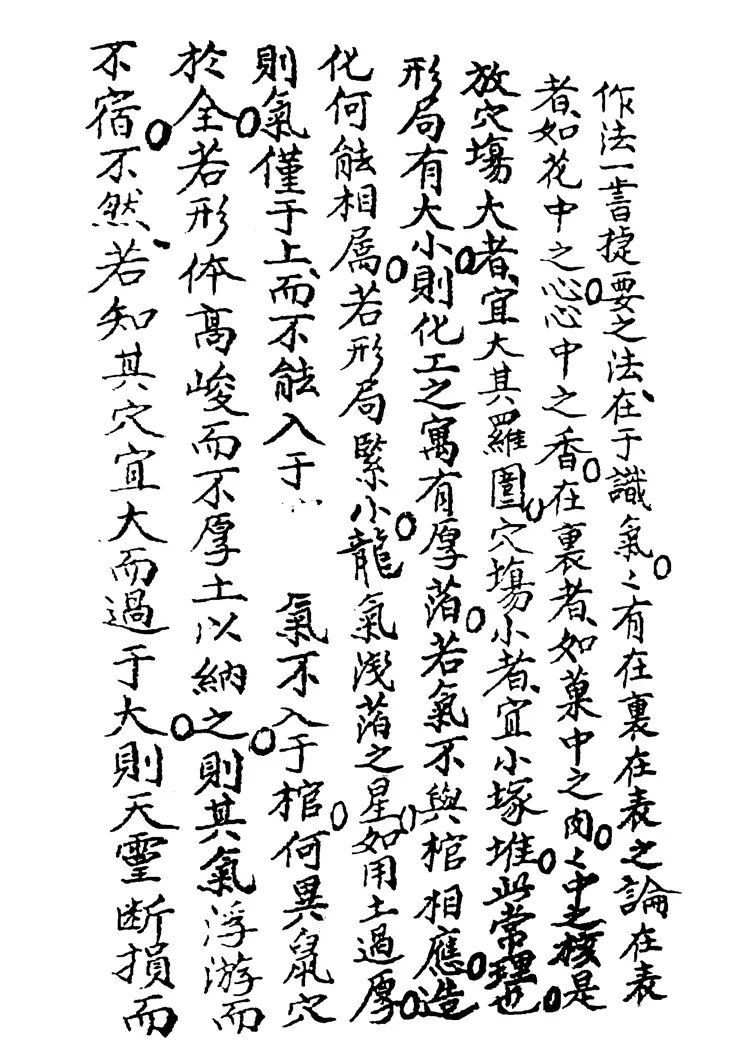 作法一書捷要之法、在于識氣。〻有在裏在表之論在表
者、如花中之心。心中之香。在裏者、如菓中之肉。〻中之核。是
放穴塲大者、宜大其羅圍。穴塲小者、宜小塚堆。此常理也。
形局有大小。則化工之寓有厚萡。若氣不與棺相應。造
化何能相属。若形局緊小。龍氣浅萡之星。如用土過厚。
則氣僅于上、而不能入于 氣不入于棺。何異鼠穴
於全。若形体高峻而不厚土以納之。則其氣浮游而
不宿。不然、若知其穴宜大而過于大。則天靈断損而